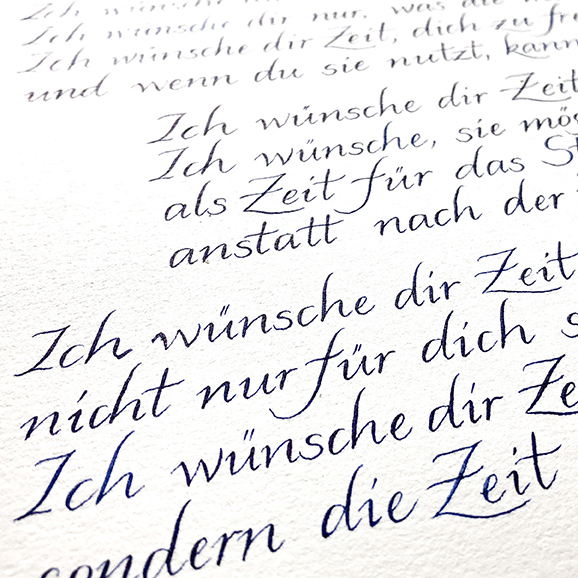 Ich wünsche dir nur, was die
Ich wünsche dir Zeit, dich zu
und wenn du sie nutzt, kann
Ich wünsche dir Zeit
Ich wünsche, sie
als Zeit für das
anstatt nach der
Ich wünsche dir Zeit
nicht nur für dich
Ich wünsche dir
sondern die Zeit